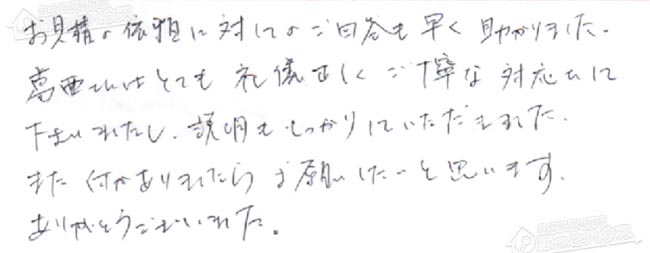 お見積の依頼に対してのご回答も早く助かりました。
葛西さんはとても礼儀正しくご丁寧な対応をして
下さいましたし、説明もしっかりしていただきました。
また何かありましたらお願いしたいと思います。
ありがとうございました。